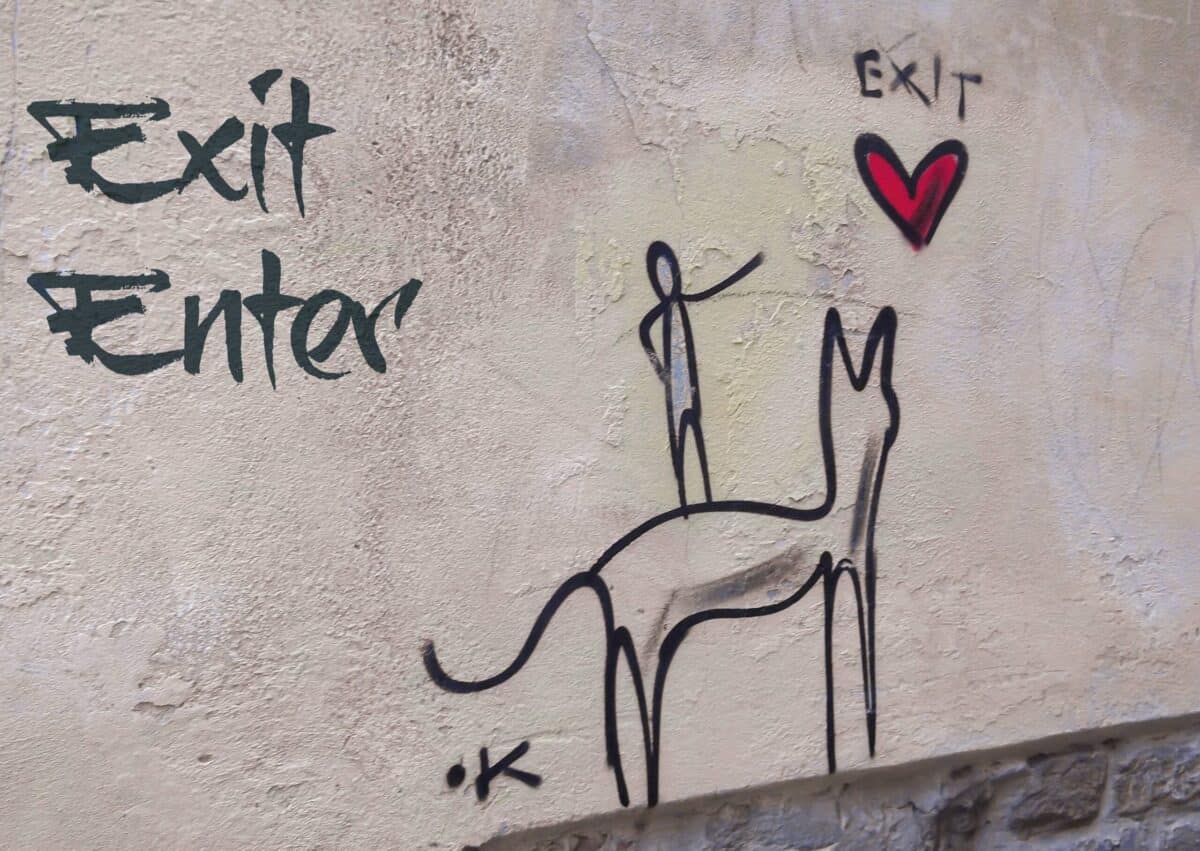 Exit
Enter
EXIT
.K